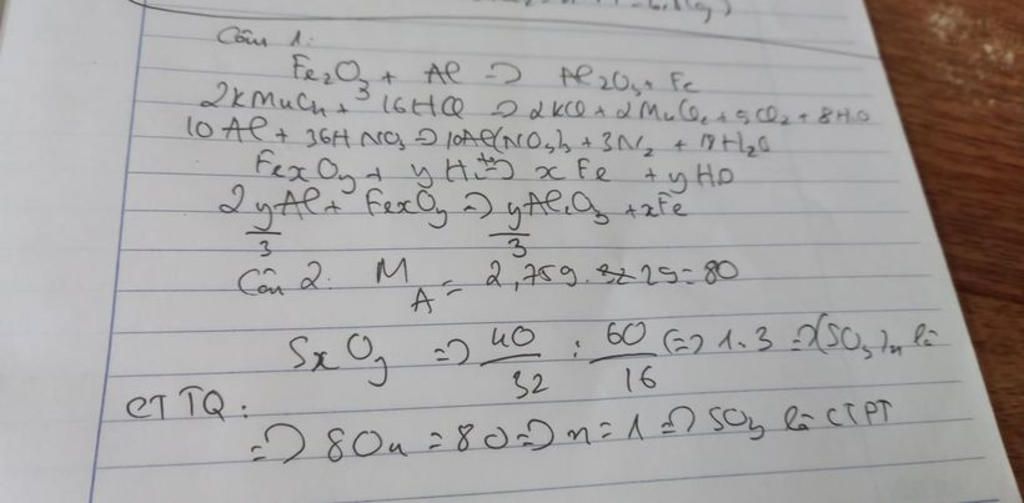 Câu 1:
Fe2O3 + Al => Al2O3 + Fe
2KMnO4 + 16HCl => 2KCl + 2MnCl2 + 5Cl2 + 8H2O
10Al + 36HNO3 => 10Al(NO3)3 + 3N2 + 18H2O
FexOy + yH2 => xFe + yH2O
2y/3 Al + FexOy => y/3 Al2O3 + xFe
Câu 2: MA = 2,759. 29 = 80
SxOy => 40/32 : 60/16 <=> 1:3 => (SO3)n là
CTTQ:
=> 80n = 80 => n = 1 => SO3 là CTPT